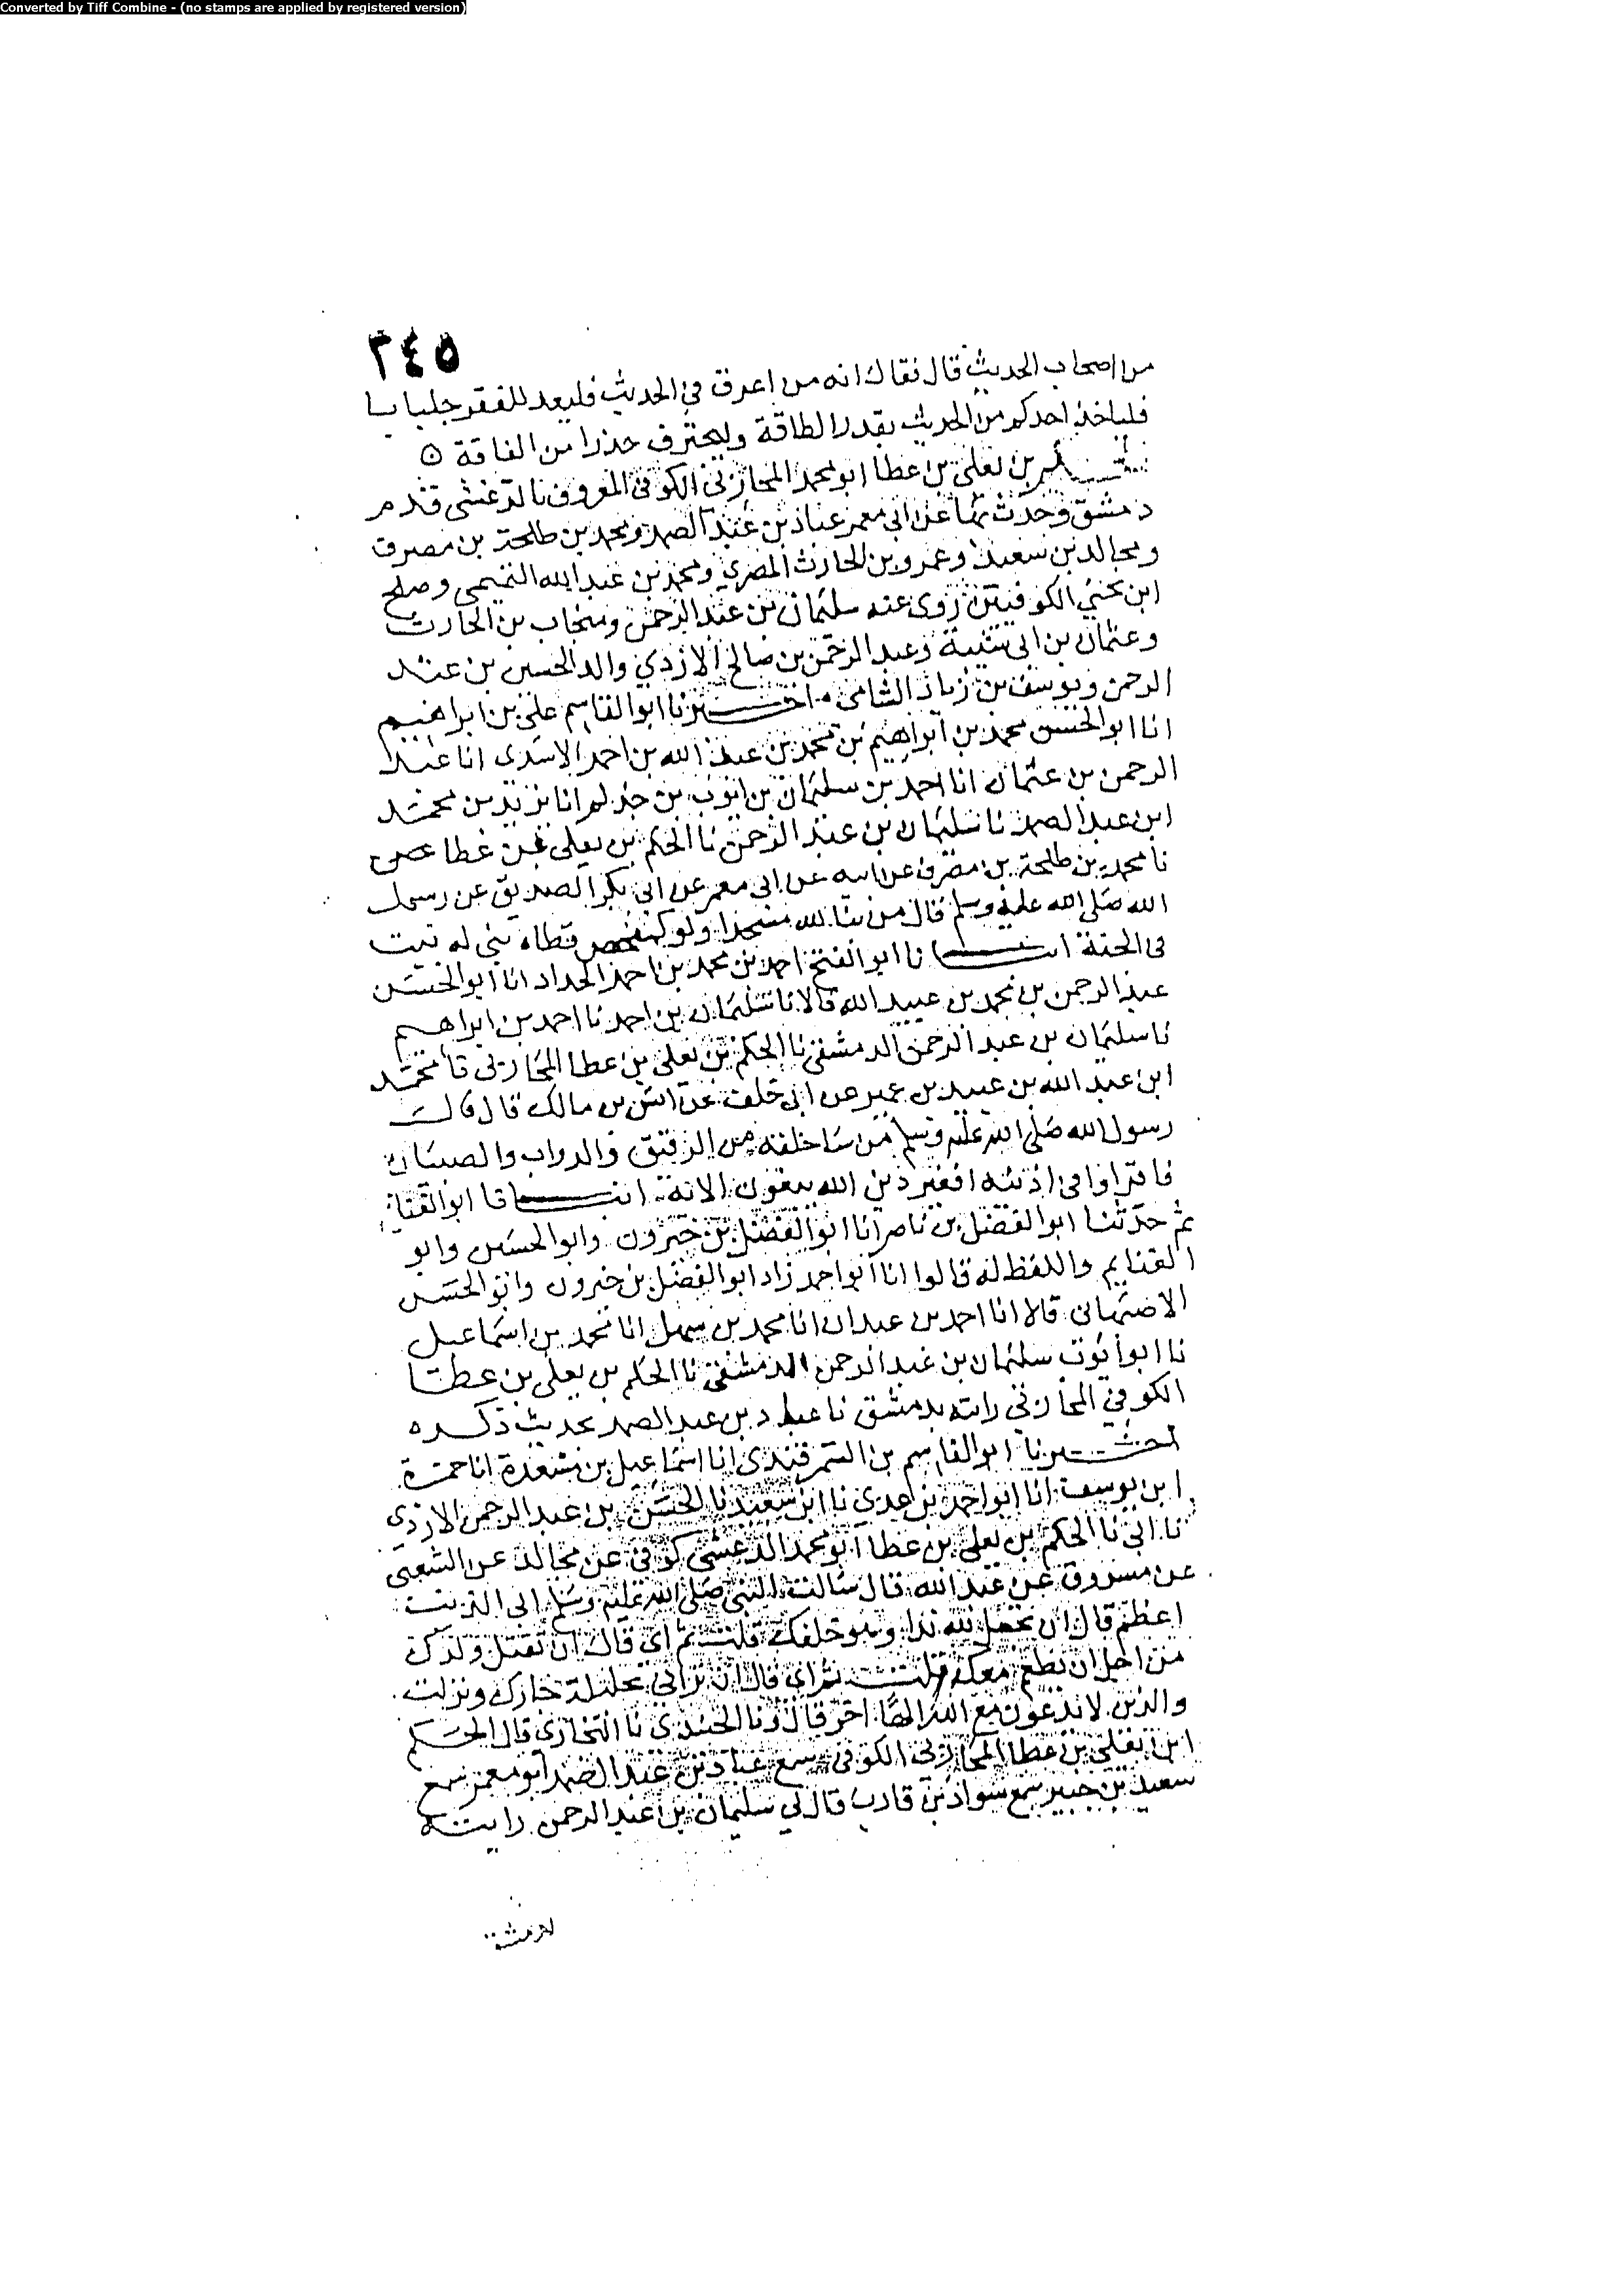 Converted by Tiff Combine - (no stamps are applied by registered version)
٢٤٥
من اصحاب الحديث قال فقال انه من اعرق في الحديث فليعد للفقر جلبابا
فلياخذ احدكم من الحديث بقدر الطاقة وليحترف حذرا من الفاقة ٥
بن يعلى بن عطا ابو محمد المحاربي الكوفي المعروف بالدغشي قدم
دمشق وحدث بها عن ابي معمر عباد بن عبد الصمد ومحمد بن طلحة بن مصرف
ومجالد بن سعيد وعمرو بن الحارث المصري ومحمد بن عبد الله التميمي وصلح
ابن يحيى الكوفيين روى عنه سليمان بن عبد الرحمن ومنجاب بن الحارث
وعثمان بن ابي شيبة وعبد الرحمن بن صالح الازدي والد الحسين بن عبد
الرحمن ويوسف بن زياد الشامي اخبرنا ابو القاسم علي بن ابراهيم
انا ابو الحسن محمد بن ابراهيم بن محمد بن عبد الله بن احمد الاسدي انا عبد
الرحمن بن عثمان انا احمد بن سليمان بن ايوب بن حذلم انا يزيد بن محمد
ابن عبد الصمد نا سليمان بن عبد الرحمن نا الحكم بن يعلى بن عطا
نا محمد بن طلحة بن مصرف عن ابيه عن ابي معمر عن ابي بكر الصديق عن رسول
الله صلى الله عليه وسلم قال من بنا لله مسجدا ولو كمفحص قطاة بني له بيت
في الجنة انبانا ابو الفتح احمد بن محمد بن احمد الحداد انا ابو الحسن
عبد الرحمن بن محمد بن عبيد الله قالا نا سليمان بن احمد نا احمد بن ابراهيم
نا سليمان بن عبد الرحمن الدمشقي نا الحكم بن يعلى بن عطا المحاربي نا محمد
ابن عبد الله بن عبيد بن عمير عن ابي خلف عن انس بن مالك قال قال
رسول الله صلى الله عليه وسلم من سا خلقه من الرقيق والدواب والصبيان
فاقراوا في اذنيه افغير دين الله يبغون الاية انبانا ابو الغنايم
ثم حدثنا ابو الفضل بن ناصر انا ابو الفضل بن خيرون وابو الحسين وابو
الغنايم واللفظ له قالوا انا ابو احمد زاد ابو الفضل بن خيرون وابو الحسن
الاصبهاني قالا انا احمد بن عبدان انا محمد بن سهل انا محمد بن اسماعيل
نا ابو ايوب سليمان بن عبد الرحمن الدمشقي نا الحكم بن يعلى بن عطا
الكوفي المحاربي رايته بدمشق نا عباد بن عبد الصمد بحديث ذكره
اخبرنا ابو القاسم بن السمرقندي انا اسماعيل بن مسعدة انا حمزة
ابن يوسف انا ابو احمد بن عدي نا ابن سعيد نا الحسن بن عبد الرحمن الازدي
نا ابي نا الحكم بن يعلى بن عطا ابو محمد الدغشي كوفي عن مجالد عن الشعبي
عن مسروق عن عبد الله قال سالت النبي صلى الله عليه وسلم اي الذنب
اعظم قال ان تجعل لله ندا وهو خلقك قلت ثم اي قال ان تقتل ولدك
من اجل ان يطعم معك قلت ثم اي قال ان تزاني بحليلة جارك ونزلت
والذين لا يدعون مع الله الها اخر قال ونا الجنيدي نا البخاري قال الحكم
ابن يعلى بن عطا المحاربي الكوفي سمع عباد بن عبد الصمد ابو معمر سمع
سعيد بن جبير سمع سواد بن قارب قال لي سليمان بن عبد الرحمن رايته
بدمشق